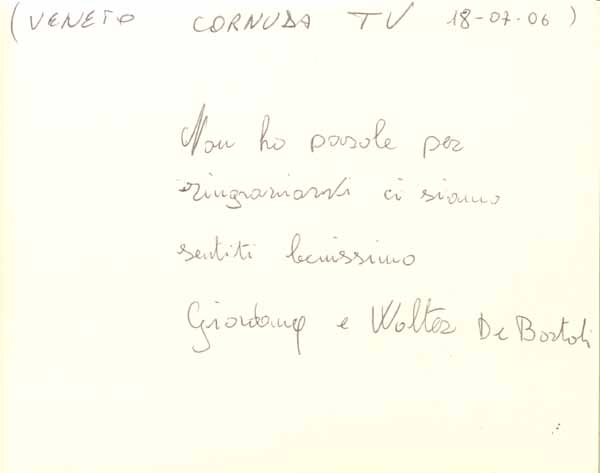 (VENETO CORNUDA TV 18-07-06)
Non ho parole per
ringraziarvi ci siamo
sentiti benissimo
Giordana e Walter De Bortoli